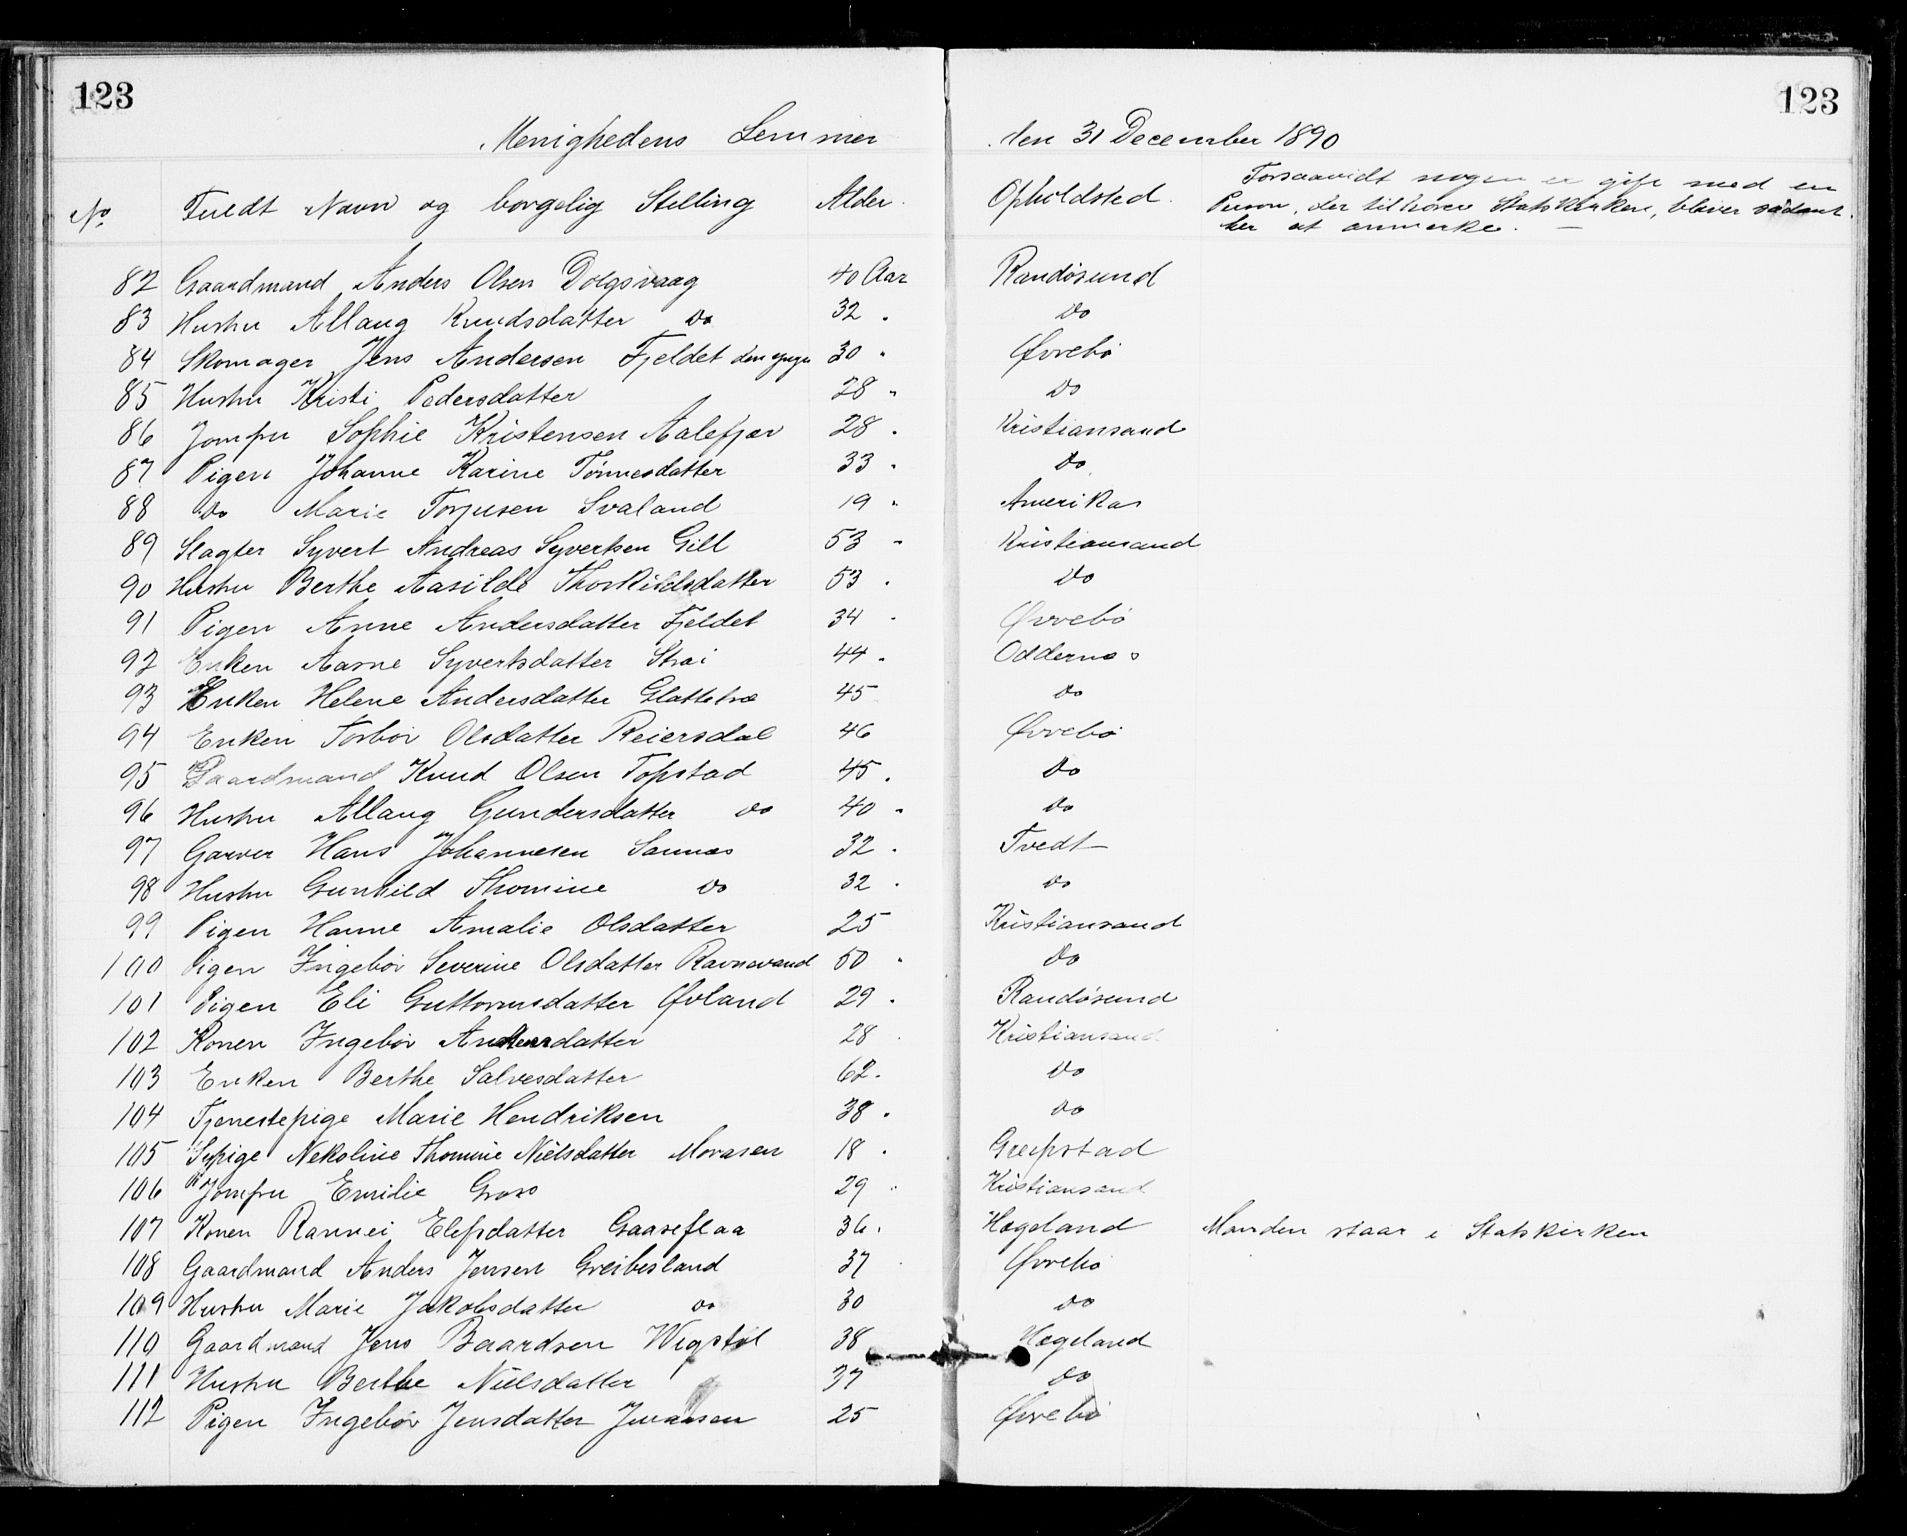 123 123
Menighedens Lemmer den 31 December 1890
No Fuldt Navn og borgelig Stilling Alder. Opholdsted. Forsaavidt nogen er gift med en
Person, der tilhører Statskirken, bliver sådant
her at anmerke. —
82 Gaardmand Anders Olsen Dolgsvaag 40 Aar Randøsund
83 Hustru Allaug Knudsdatter Do 32 " Do
84 Skomager Jens Andersen Fjeldet den yngre 30 " Øvrebø
85 Hustru Kristi Pedersdatter 28 " Do
86 Jomfru Sophie Kristensen Aalefjær 28 " Kristiansand
87 Pigen Johanne Karine Tønnesdatter 33 " Do
88 Do Marie Torjusen Svaland 19 " Amerika
89 Slagter Syvert Andreas Syvertsen Gill 53 " Kristiansand
90 Hustru Berthe Aasilde Thorkildsdatter 53 " Do
91 Pigen Anne Andersdatter Fjeldet 34 " Øvrebø
92 Enken Aasne Syvertsdatter Strai 44 " Oddernes
93 Enken Helene Andersdatter Glattetre 45 Do
94 Enken Torbør Olsdatter Reiersdal 46 Øvrebø
95 Gaardmand Knud Olsen Topstad 45 " Do
96 Hustru Allaug Gundersdatter Do 40 " Do
97 Garver Hans Johannesen Sannæs 32 " Tvedt
98 Hustru Gunhild Thomine Do 32 " Do
99 Pigen Hanne Amalie Olsdatter 25 Kristiansand
100 Pigen Ingebør Severine Olsdatter Ravnevand 50 " Do
101 Pigen Eli Guttormsdatter Øvland 29 " Randøsund
102 Konen Ingebør Andersdatter 28 Kristiansand
103 Enken Berthe Salvesdatter 62 " Do
104 Tjenestepige Marie Hendriksen 38 " Do
105 Sypige Nekoline Thomine Nielsdatter Morasen 18 " Greipstad
106 Jomfru Emilie Gross 29 " Kristiansand
107 Konen Rannei Elefsdatter Gaaseflaa 36 " Hægeland Manden staar i Statskirken
108 Gaardmand Anders Jensen Greibesland 37 Øvrebø
109 Hustru Marie Jakobsdatter Do 30 Do
110 Gaardmand Jens Baardsen Wigstøl 38 Hægeland
111 Hustru Berthe Nielsdatter 37 Do
112 Pigen Ingebør Jensdatter 25 Øvrebø